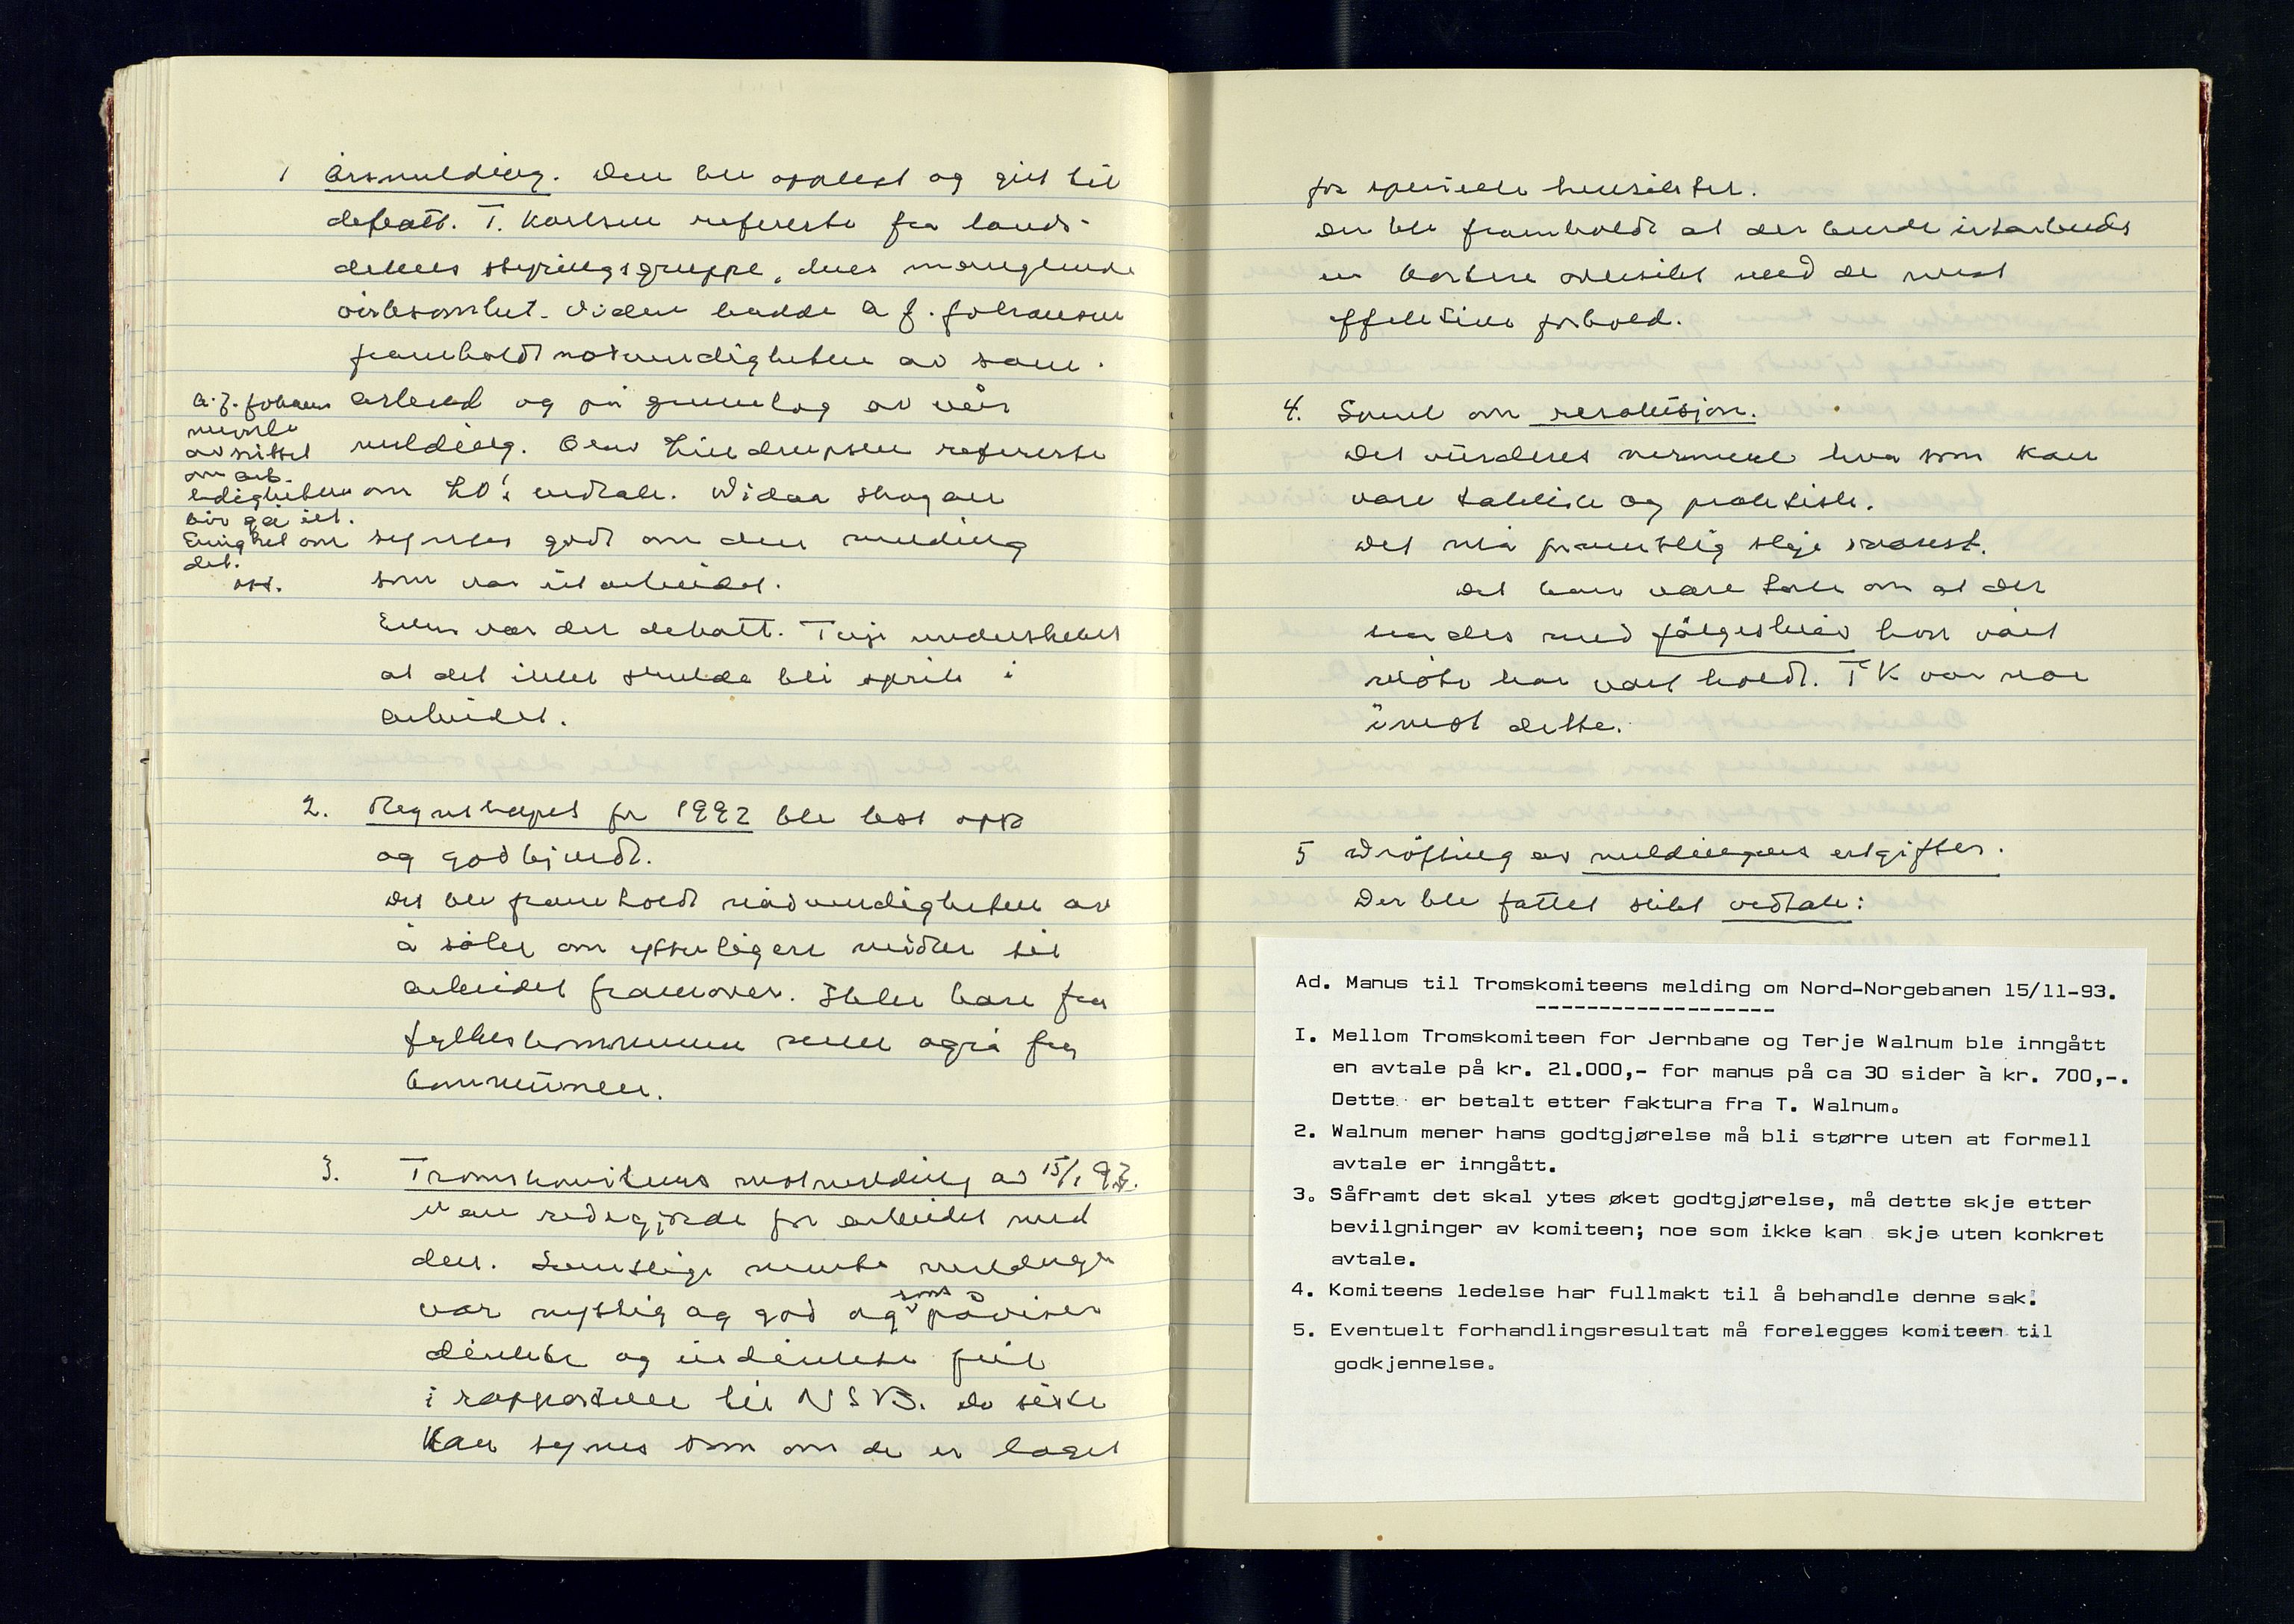 1 Årsmelding. Den ble opplest og gitt til
debatt. T. Karlsen refererte fra lands-
delens styringsgruppe, dens manglende
virksomhet. Videre hadde A J. Johansen
framholdt nødvendigheten av sam-
arbeid og på grunnlag av vår
melding. Olav Lindrupsen refererte
om LO's vedtak. Vidar Skogan
synes godt om den melding
som var utarbeidet.
A. J. Johans
mente
avsnittet
om arb.
ledigheten
bør gå ut.
Enighet om
det.
Ellers var der debatt. Terje understreket
at det ikke skulde bli sprik i
arbeidet.
2. Regnskapet for 1992 ble lest opp
og godkjendt.
Det ble framholdt nødvendigheten av
å søke om ytterligere midler til
arbeidet framover. Ikke bare fra
fylkeskommunen men også fra
kommunene.
3. Tromskomiteens motmelding av 15/1 93.
redegjorde for arbeidet med
den. Samtlige mente meldinga
var nyttig og god og som påviser
direkte og indirekte feil
i rapportene til NSB. De siste
kan synes som om de er laget
for spesielle hensikter.
Der ble framholdt at der burde utarbeids
en kortere oversikt med de mest
effektive forhold.
4. Samt om resolusjon.
Det vurderes nærmere hva som kan
være taktisk og praktisk.
Det må framtlig skje snarest.
Det kan være tale om at der
sendes med følgeskriv hvor vårt
møte har vært holdt. TK var noe
imot dette.
5 Drøfting av meldingens utgifter.
Der ble fattet slikt vedtak:
Ad. Manus til Tromskomiteens melding om Nord-Norgebanen 15/11-93.
-------------------
I. Mellom Tromskomiteen for Jernbane og Terje Walnum ble inngått
en avtale på kr. 21.000,- for manus på ca 30 sider à kr. 700,-.
Dette er betalt etter faktura fra T. Walnum.
2. Walnum mener hans godtgjørelse må bli større uten at formell
avtale er inngått.
3. Såframt det skal ytes øket godtgjørelse, må dette skje etter
bevilgninger av komiteen; noe som ikke kan skje uten konkret
avtale.
4. Komiteens ledelse har fullmakt til å behandle denne sak.
5. Eventuelt forhandlingsresultat må forelegges komiteen til
godkjennelse.